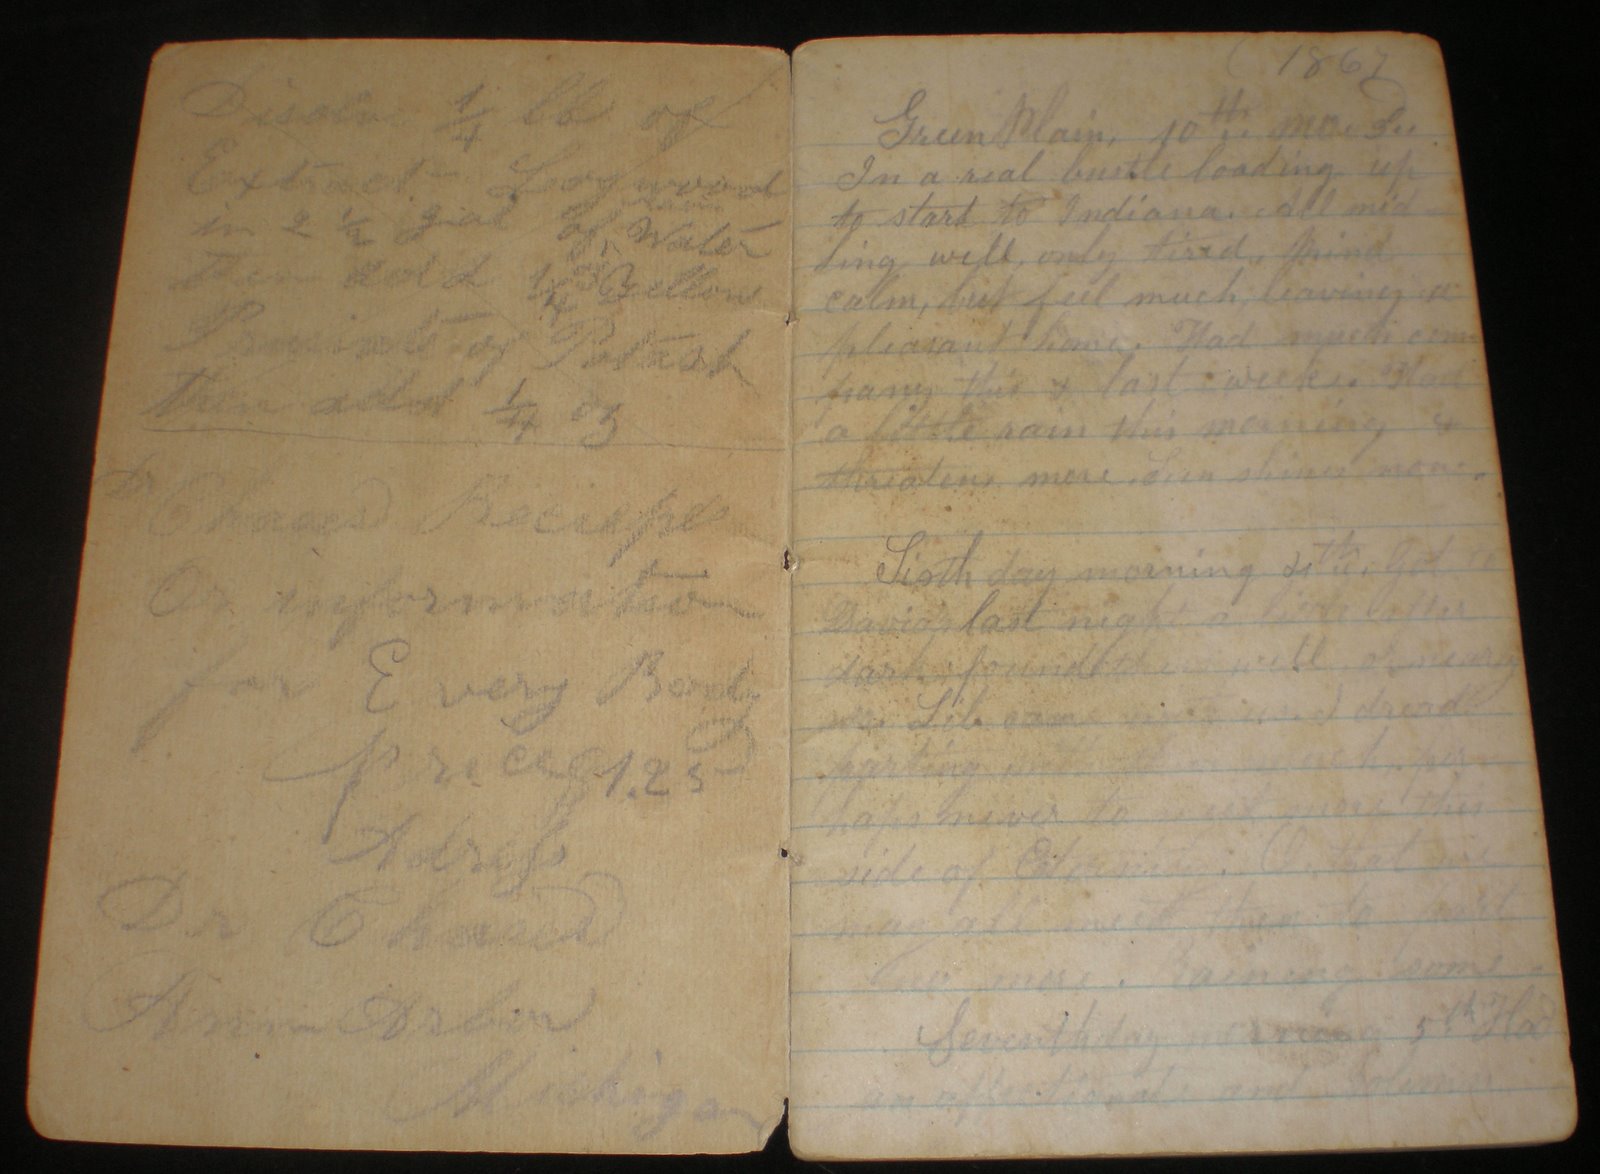 Disolve 1/4 lb of
Extract Logwood
in 2 1/2 gal of Water
rain
then add 1/4 oz Yellow
of Potash
then add 1/4 oz
Dr Chases Reciepe
Or information
for Every Body
price $1.25
Adress
Dr Chase
Ann Arbor
Michigan
1867
Green Plain, 10th mo.
In a real bustle loading up
to start to Indiana. All mid
ling well, only tired, mind
calm, but feel much, leaving a
pleasant home. Had much com
pany this & last week. Had
a little rain this morning &
threatens more. Sun shines now.
Sixth day morning 4th. Got to
last night a little after
dark, found them well or nearly
so. Lib came and dread
parting with them much, per
haps never to meet more this
side of Eternity. O, that we
may all meet then to part
no more. Raining some.
Seventh day morning 5th Had
an affectionate and solemn